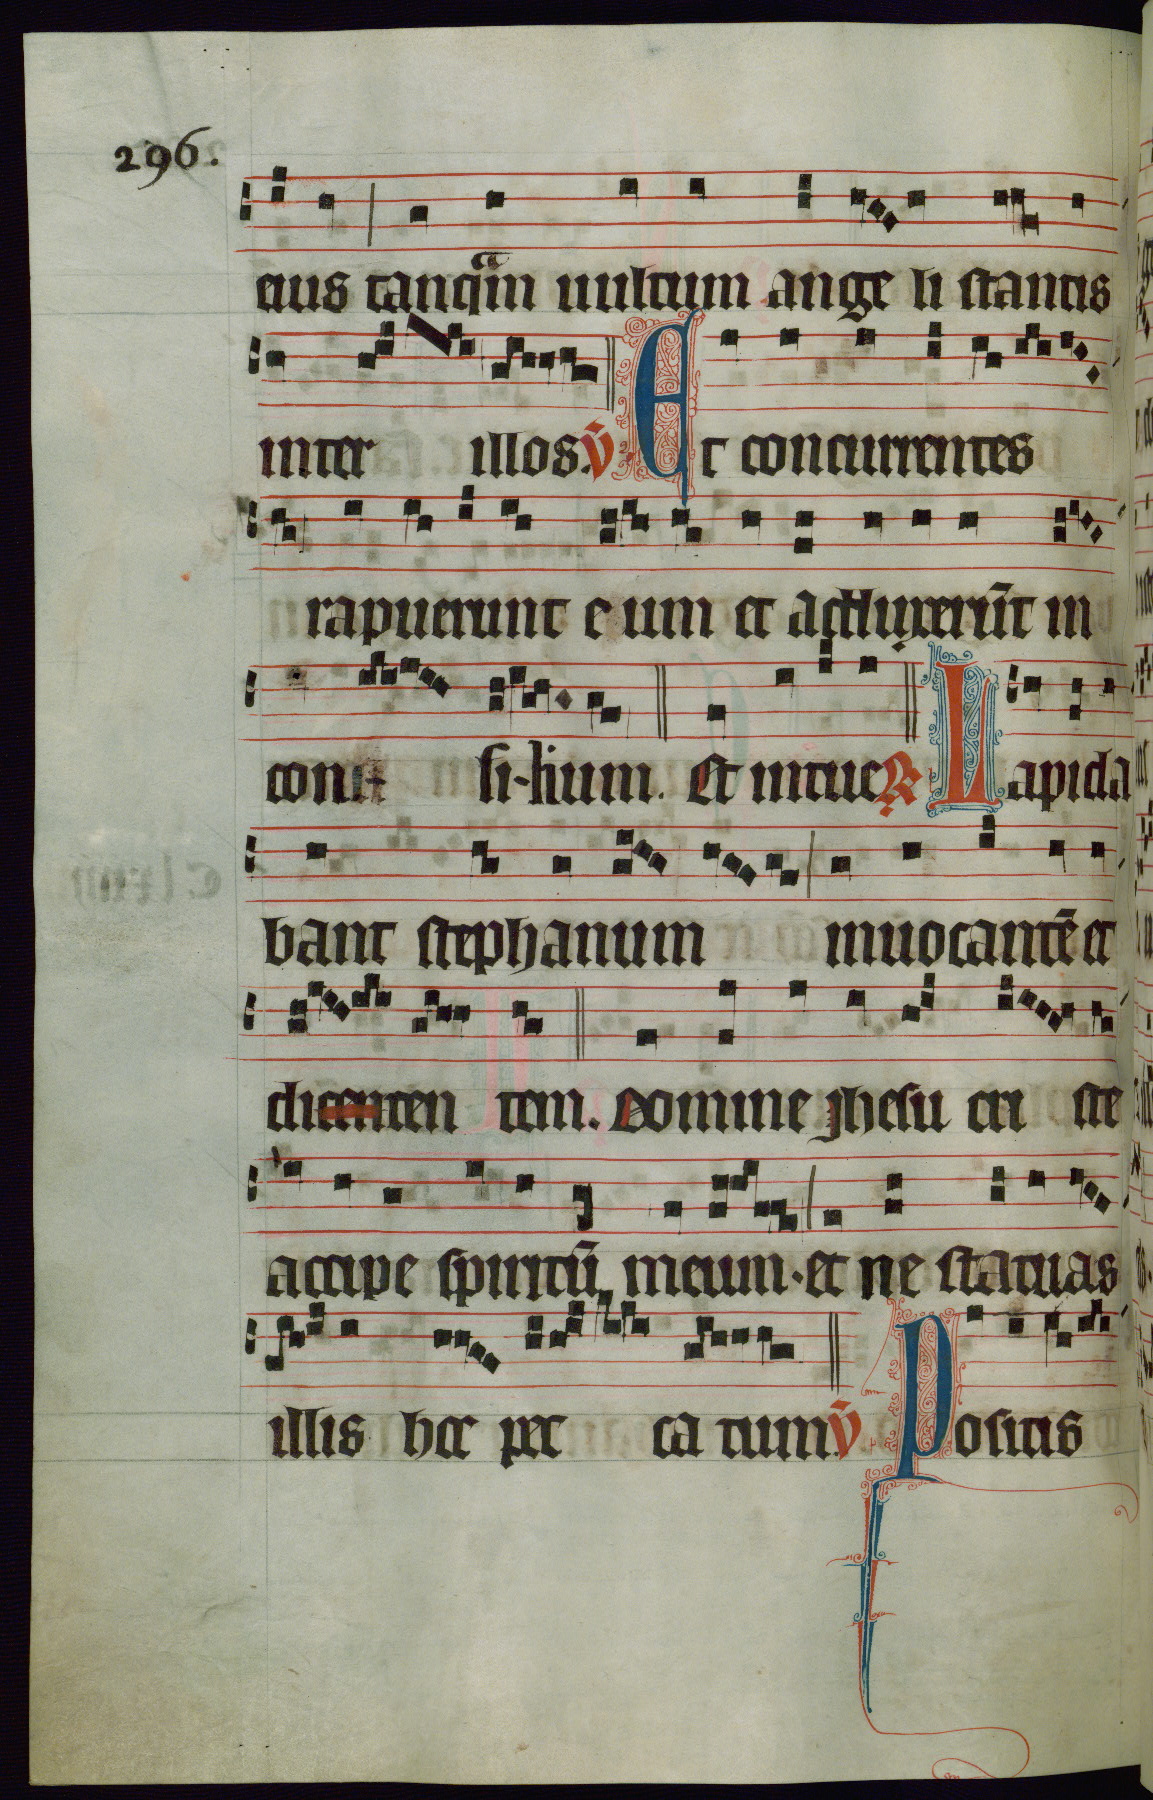 296.
eius tanqᵃm uultum ange li stantis
inter illos. V̄ Et concurrentes
rapuerunt e um et adduxerūt in
con si-lium. Et intue R Lapida
bant stephanum inuocantē et
dicenten tem. Domine jhesu cri ste
accipe spiritū meum. et ne statuas
illis hec pec ca tum V̄ Positis